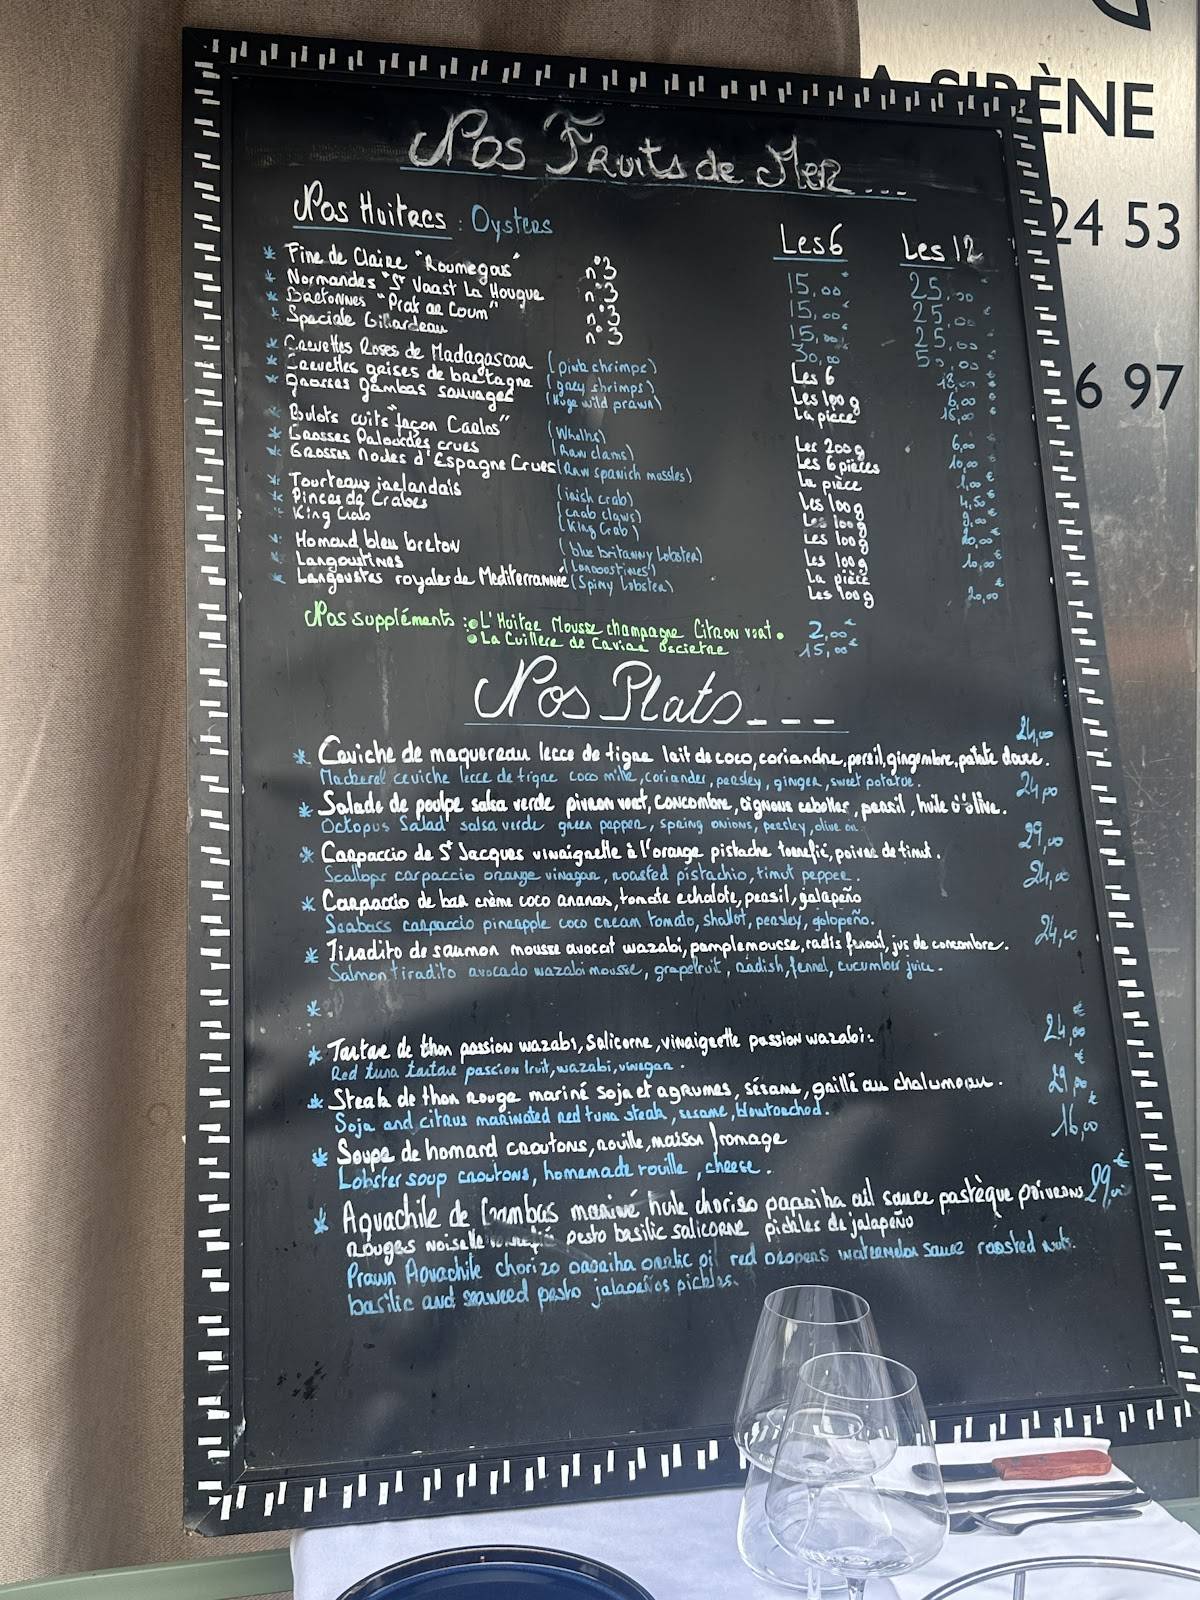 LA SIRÈNE
24 53
6 97
Nos Fruits de Mer...
Nos Huitres : Oysters
Les 6 Les 12
* Fine de Claire "Roumegous" n°3 15,00€ 25,00€
* Normandes "St Vaast La Hougue n°3 15,00€ 25,00€
* Bretonnes "Prat ar Coum" n°3 15,00€ 25,00€
* Speciale Gillardeau n°3 30,00 50,00€
* Crevettes Roses de Madagascar (pink shrimps) Les 6 18,00€
* Crevettes grises de bretagne (grey shrimps) Les 100g 6,00€
* Grosses gambas sauvages (Huge wild prawn) La pièce 15,00€
* Bulots cuits "façon Carlos" (Whelks) Les 200g 6,00€
* Grosses Palourdes crues (Raw clams) Les 6 pièces 10,00€
* Grosses Moules d'Espagne Crues (Raw spanich mussles) La pièce 1,00€
* Tourteaux irelandais (irish crab) Les 100g 4,50€
* Pinces de Crabes (crab claws) Les 100g 9,00€
* King Crab (King Crab) Les 100g 20,00€
* Homard bleu breton (blue britanny Lobster) Les 100g 10,00€
* Langoustines (Langoustines) La pièce
* Langoustes royales de Mediterrannée (Spiny Lobster) Les 100g 20,00€
Nos suppléments : • L'Huitre Mousse champagne Citron vert • 2,00€
• La Cuillere de Caviar oscietre 15,00€
Nos Plats---
* Ceviche de maquereau lecce de tigre lait de coco, coriandre, persil, gingembre, patate douce. 24,00
Mackerel ceviche lecce de tigre coco milk, coriander, pearsley, ginger, sweet potatoe.
* Salade de poulpe salsa verde pivron vert, concombre, oignons cebettes, persil, huile d'olive. 24,00
Octopus Salad salsa verde green papper, spring onions, pearsley, olive oil
* Carpaccio de St Jacques vinaigrette à l'orange pistache torrefié, poivre de timut. 29,00
Scallops carpaccio orange vinegar, roasted pistachio, timut pepper.
* Carpaccio de bar crème coco ananas, tomate echalote, persil, jalapeño 24,00
Seabass carpaccio pineapple coco cream tomato, shallot, pearsley, jalapeño.
* Tiradito de saumon mousse avocat wazabi, pamplemousse, radis fenouil, jus de concombre. 24,00
Salmon tiradito avocado wazabi mousse, grapefruit, radish, fennel, cucumber juice.
*
* Tartare de thon passion wazabi, Salicorne, vinaigrette passion wazabi. 24,00€
Red tuna tartare passion fruit, wazabi, vinegar.
* Steak de thon Rouge mariné soja et agrumes, sésame, grillé au chalumeau. 29,00€
Soja and citrus marinated red tuna steak, sesame, blowtorched.
* Soupe de homard croutons, rouille, maison fromage 16,00€
Lobster soup croutons, homemade rouille, cheese.
* Aguachile de Gambas mariné huile chorizo paprika ail sauce pastèque poivrons 29,00€
rouges noisette torrefié pesto basilic salicorne pickles de jalapeño
Prawn Aguachile chorizo papaika garlic oil red peppers watermelon sauce roasted nuts.
basilic and seaweed pesto jalapeños pickles.